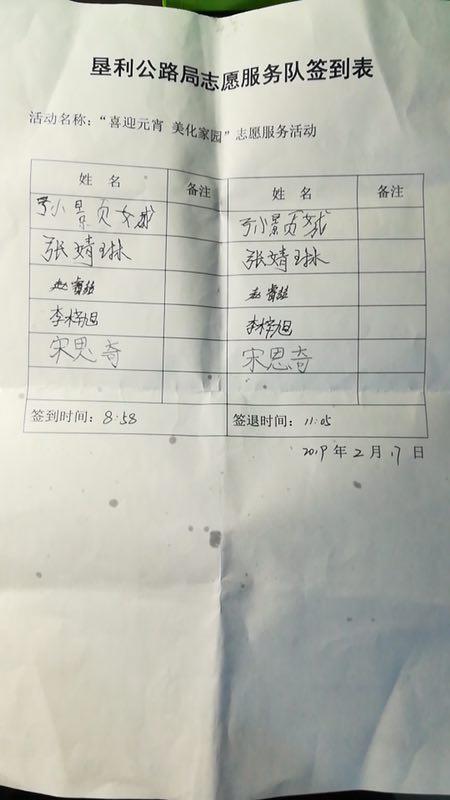 垦利公路局志愿服务队签到表
活动名称：“喜迎元宵 美化家园”志愿服务活动
姓 名 备注 姓 名 备注
张婧琳 张婧琳
李梓旭 李梓旭
宋思奇 宋思奇
签到时间：8:58 签退时间：11:05
2019 年 2 月 17 日